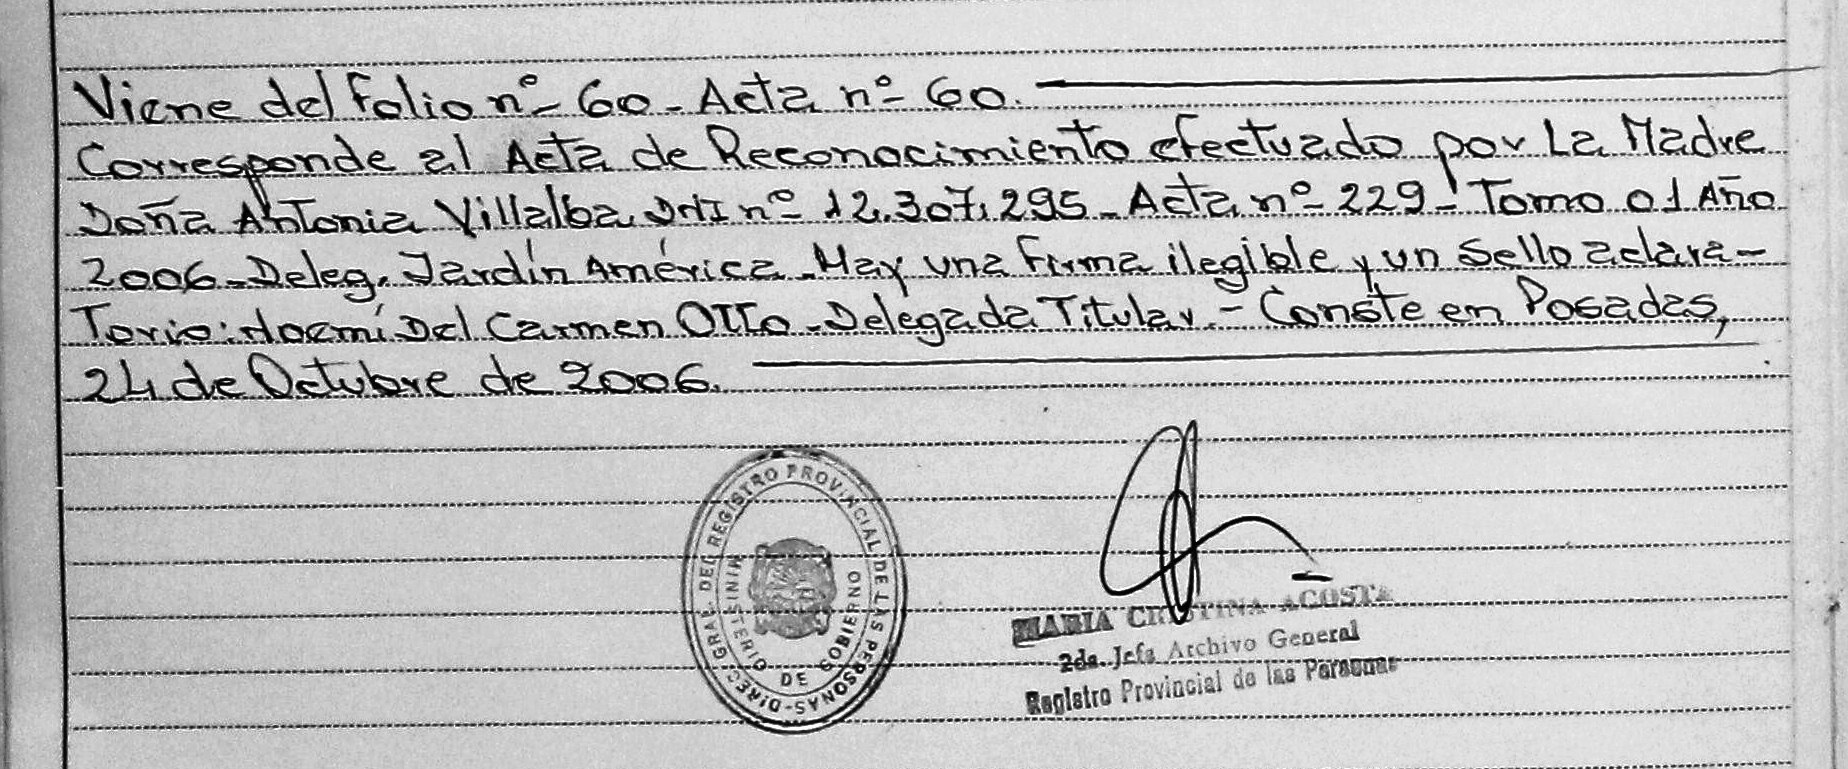 Viene del folio nº 60 - Acta nº 60.
Corresponde al Acta de Reconocimiento efectuado por La Madre
Doña Antonia Villalba DNI nº 12.307.295 - Acta nº 229 - Tomo 01 Año
2006 - Deleg. Jardín América. Hay una firma ilegible y un sello aclara-
torio: Noemí Del Carmen Otto - Delegada Titular. - Conste en Posadas,
24 de Octubre de 2006.
DIREC. GRAL. DEL REGISTRO PROVINCIAL DE LAS PERSONAS -
MINISTERIO DE GOBIERNO
MARIA CRISTINA ACOSTA
2da. Jefa Archivo General
Registro Provincial de las Personas